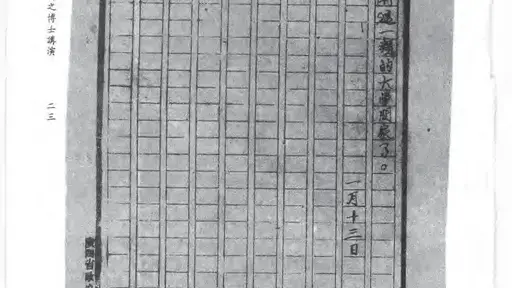 這一類的大學問家了。
一月十三日
之博士講演 二三